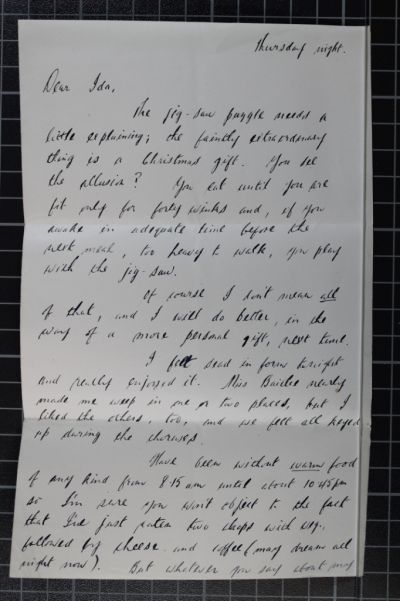 Thursday night.
Dear Ida,
The jig-saw puzzle needs a
little explaining; the faintly extraordinary
thing is a Christmas gift. You see
the allusion? You eat until you are
fit only for forty winks and, if you
awake in adequate time before the
next meal, too heavy to walk, you play
with the jig-saw.
Of course I don't mean all
of that, and I will do better, in the
way of a more personal gift, next time.
I felt dead in form tonight
and really enjoyed it. Miss Baillie nearly
made me weep in one or two places, but I
liked the others, too, and we felt all
up during the choruses.
Have been without warm food
of any kind from 8.15 am until about 10.45pm
so I'm sure you won't object to the fact
that I've just eaten two chops with veg.
followed by cheese and coffee (may dream all
night now). But whatever you say about my